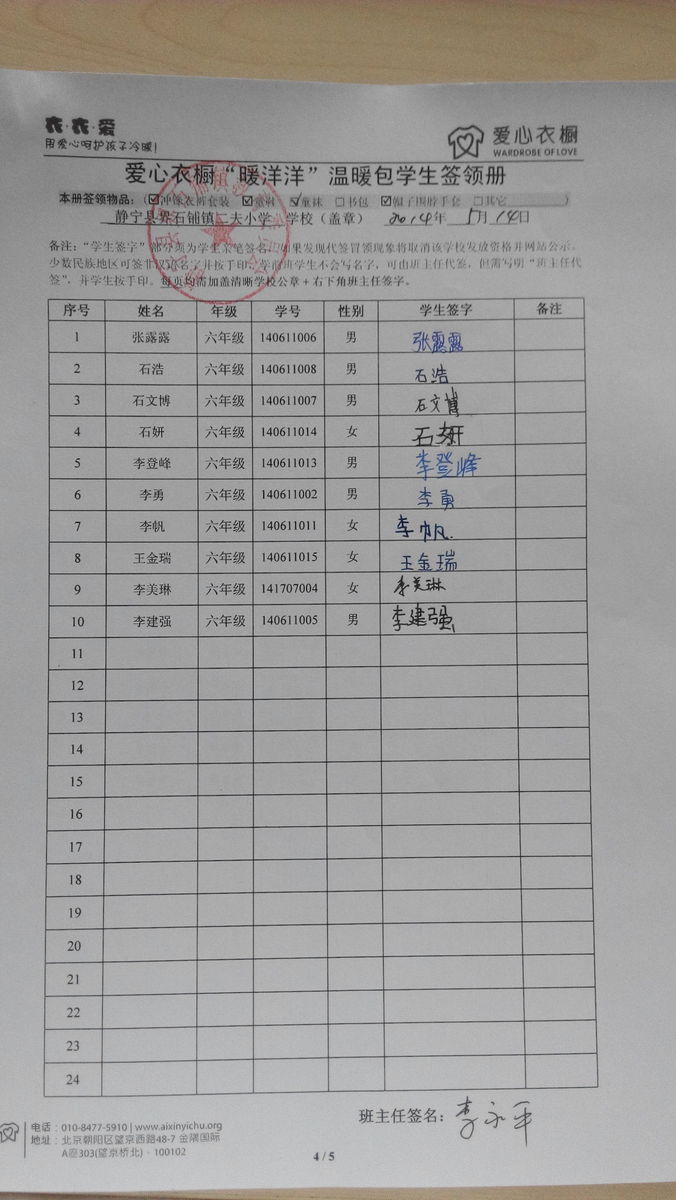 衣·衣·爱
用爱心呵护孩子冷暖!
爱心衣橱
WARDROBE OF LOVE
爱心衣橱“暖洋洋”温暖包学生签领册
本册签领物品:(☑冲锋衣裤套装 ☑童鞋 ☑童袜 □书包 ☑帽子围脖手套 □其它 )
静宁县界石铺镇二夫小学 学校(盖章) 2014年 5月 14日
备注:“学生签字”部分须为学生亲笔签名,如果发现代签冒领现象将取消该学校发放资格并网站公示。
少数民族地区可签非汉语名字并按手印。学前班学生不会写名字,可由班主任代签,但需写明“班主任代
签”,并学生按手印。每页均需加盖清晰学校公章+右下角班主任签字。
序号 姓名 年级 学号 性别 学生签字 备注
1 张露露 六年级 140611006 男 张露露
2 石浩 六年级 140611008 男 石浩
3 石文博 六年级 140611007 男 石文博
4 石妍 六年级 140611014 女 石妍
5 李登峰 六年级 140611013 男 李登峰
6 李勇 六年级 140611002 男 李勇
7 李帆 六年级 140611011 女 李帆
8 王金瑞 六年级 140611015 女 王金瑞
9 李美琳 六年级 141707004 女 李美琳
10 李建强 六年级 140611005 男 李建强
11
12
13
14
15
16
17
18
19
20
21
22
23
24
班主任签名: 李永平
电话:010-8477-5910 | www.aixinyichu.org
地址:北京朝阳区望京西路48-7 金隅国际
A座303(望京桥北)· 100102
4 / 5